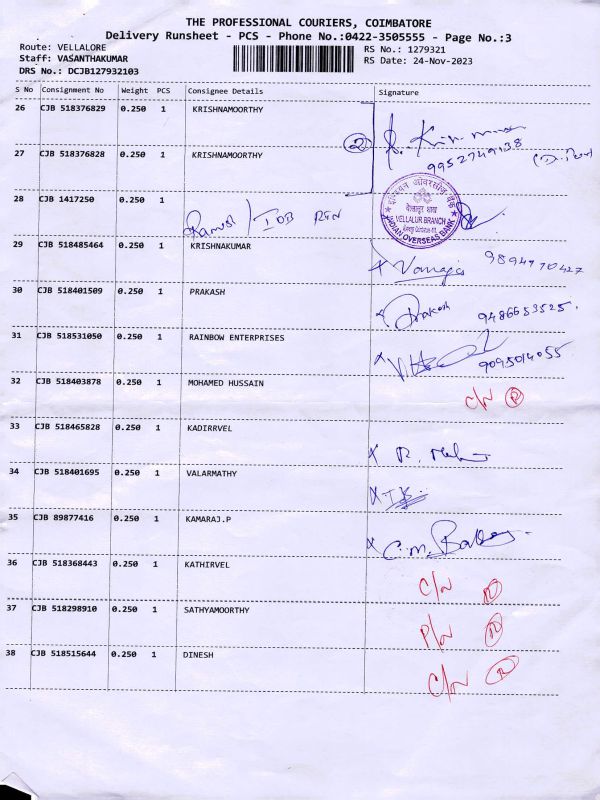 THE PROFESSIONAL COURIERS, COIMBATORE
Delivery Runsheet - PCS - Phone No.:0422-3505555 - Page No.:3
Route: VELLALORE RS No.: 1279321
Staff: VASANTHAKUMAR RS Date: 24-Nov-2023
DRS No.: DCJB127932103
S No Consignment No Weight PCS Consignee Details Signature
26 CJB 518376829 0.250 1 KRISHNAMOORTHY
2
9952749138
27 CJB 518376828 0.250 1 KRISHNAMOORTHY
28 CJB 1417250 1
इण्डियन ओवरसीज़ बैंक
VELLALUR BRANCH
INDIAN OVERSEAS BANK
29 CJB 518485464 0.250 1 KRISHNAKUMAR
30 CJB 518401509 0.250 1 PRAKASH Prakash 9486653525.
31 CJB 518531050 0.250 1 RAINBOW ENTERPRISES 9095014055
32 CJB 518403878 0.250 1 MOHAMED HUSSAIN C/N R
33 CJB 518465828 0.250 1 KADIRRVEL
34 CJB 518401695 0.250 1 VALARMATHY
35 CJB 89877416 0.250 1 KAMARAJ.P
36 CJB 518368443 0.250 1 KATHIRVEL C/N R
37 CJB 518298910 0.250 1 SATHYAMOORTHY P/N R
38 CJB 518515644 0.250 1 DINESH C/N R